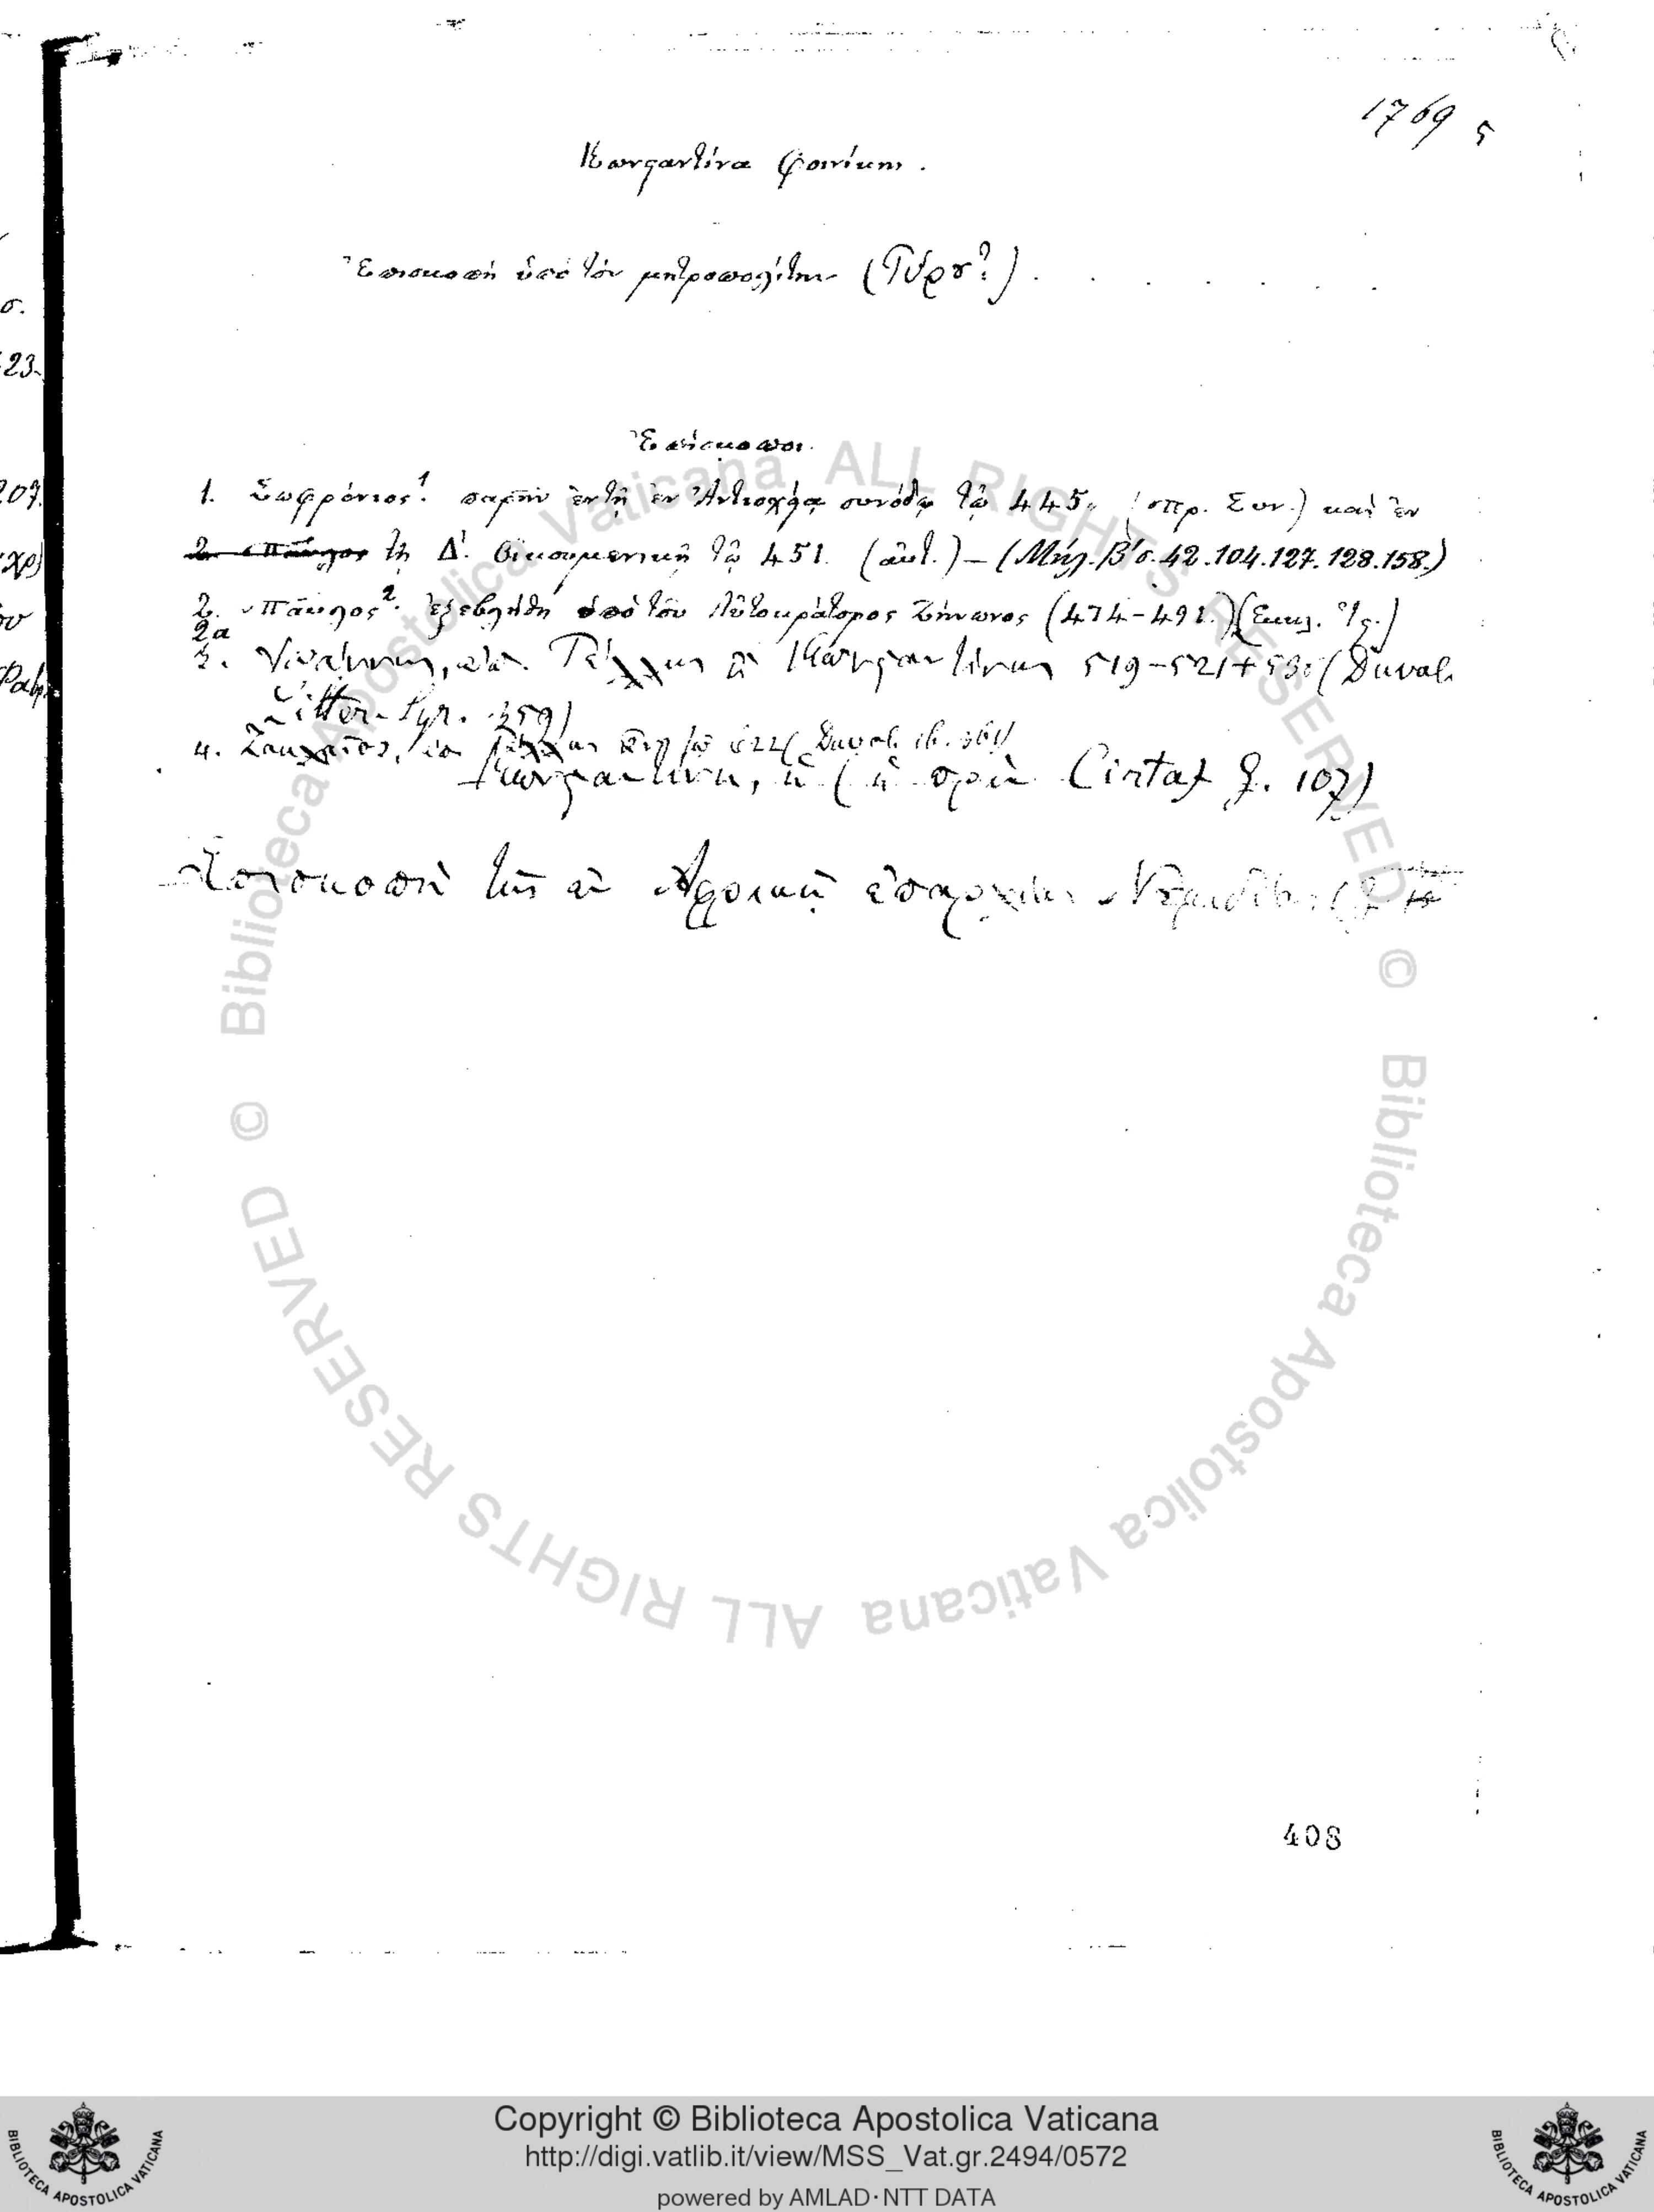 1769 5
Κωνσταντίνα Φοινίκης.
Ἐπισκοπὴ ὑπὸ τὸν μητροπολίτην (Τύρου?)
σ.
23.
Ἐπίσκοποι.
207.
1. Σωφρόνιος¹. παρῆν ἐν τῇ ἐν Ἀντιοχείᾳ συνόδῳ τῷ 445. (πρ. Συν.) καὶ ἐν
2. Παῦλος τῇ Δ΄. Οἰκουμενικῇ τῷ 451. (αὐτ.) – (Μήλ. Β΄ σ. 42.104.127.128.158.)
2. Παῦλος². ἐξεβλήθη ὑπὸ τοῦ Αὐτοκράτορος Ζήνωνος (474-491.) (Ἐκκλ. Ἱς.)
2α
3. Ἰωάννης, ἐπ. Τέλλης ἢ Κωνσταντίνης 519-521 + (Duval
Litter. Syr. 359)
4. Duval ib. 361)
Κωνσταντίνη, ἡ (ἡ πρὶν Cirta 107)
Ἐπισκοπὴ τῆς ἐν Ἀφρικῇ ἐπαρχίας Νουμιδίας
408
Biblioteca Apostolica Vaticana ALL RIGHTS RESERVED ©
Biblioteca Apostolica Vaticana ALL RIGHTS RESERVED ©
Copyright © Biblioteca Apostolica Vaticana
http://digi.vatlib.it/view/MSS_Vat.gr.2494/0572
powered by AMLAD·NTT DATA
BIBLIOTECA APOSTOLICA VATICANA
BIBLIOTECA APOSTOLICA VATICANA